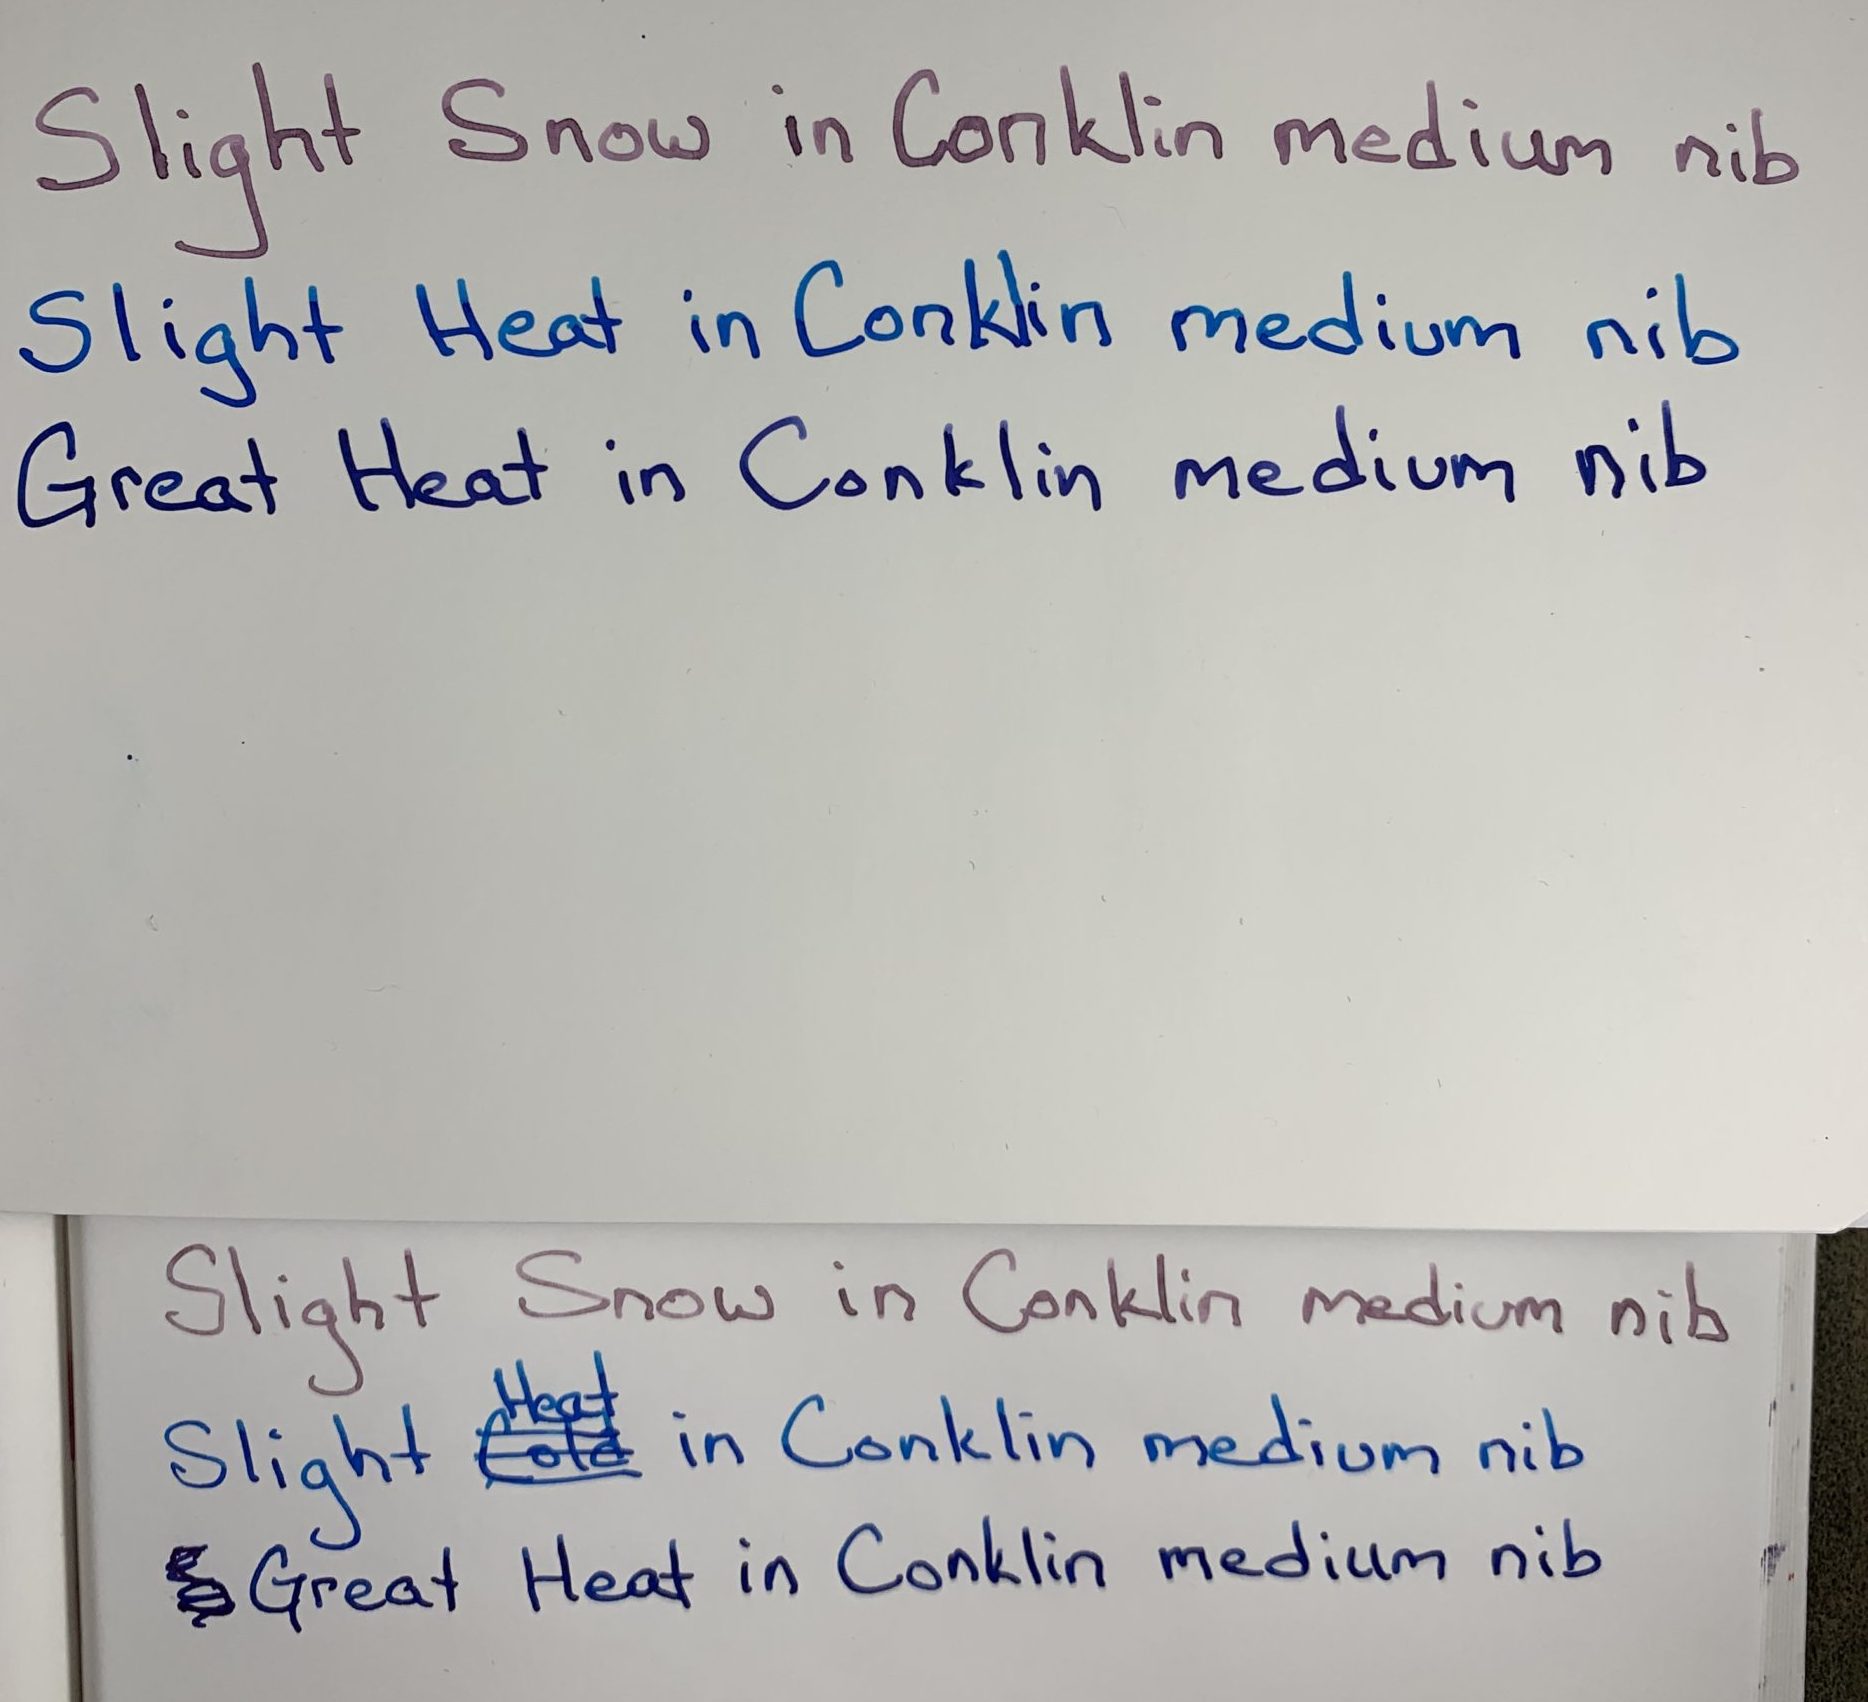 Slight Snow in Conklin medium nib
Slight Heat in Conklin medium nib
Great Heat in Conklin medium nib
Slight Snow in Conklin medium nib
Heat
Slight Cold in Conklin medium nib
Great Heat in Conklin medium nib